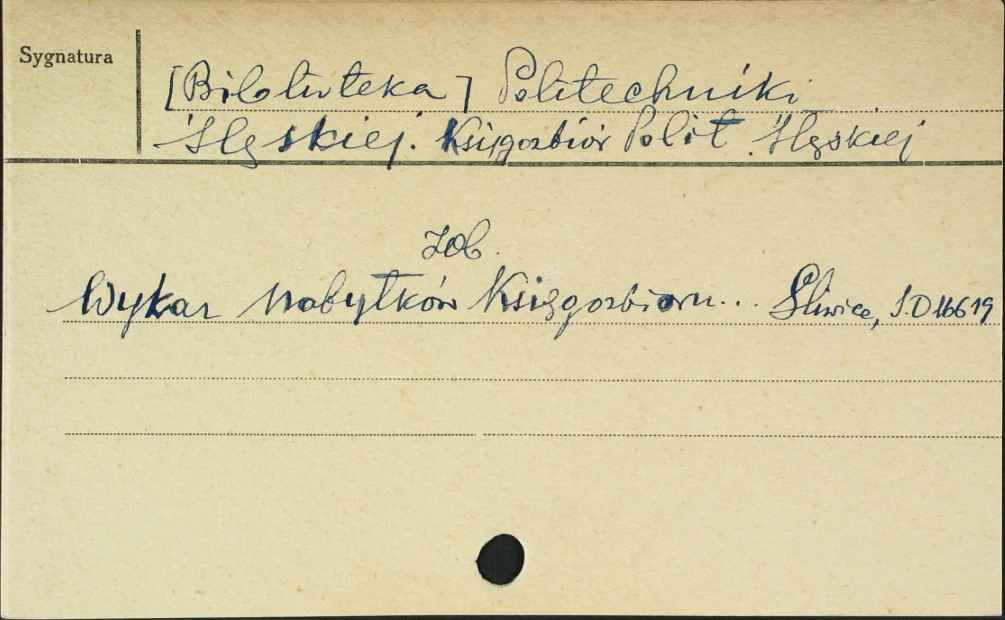 Sygnatura
[Biblioteka] Politechniki
Śląskiej. Księgozbiór Polit. Śląskiej
zob.
Wykaz Nabytków Księgozbioru... Gliwice, S.D 16619